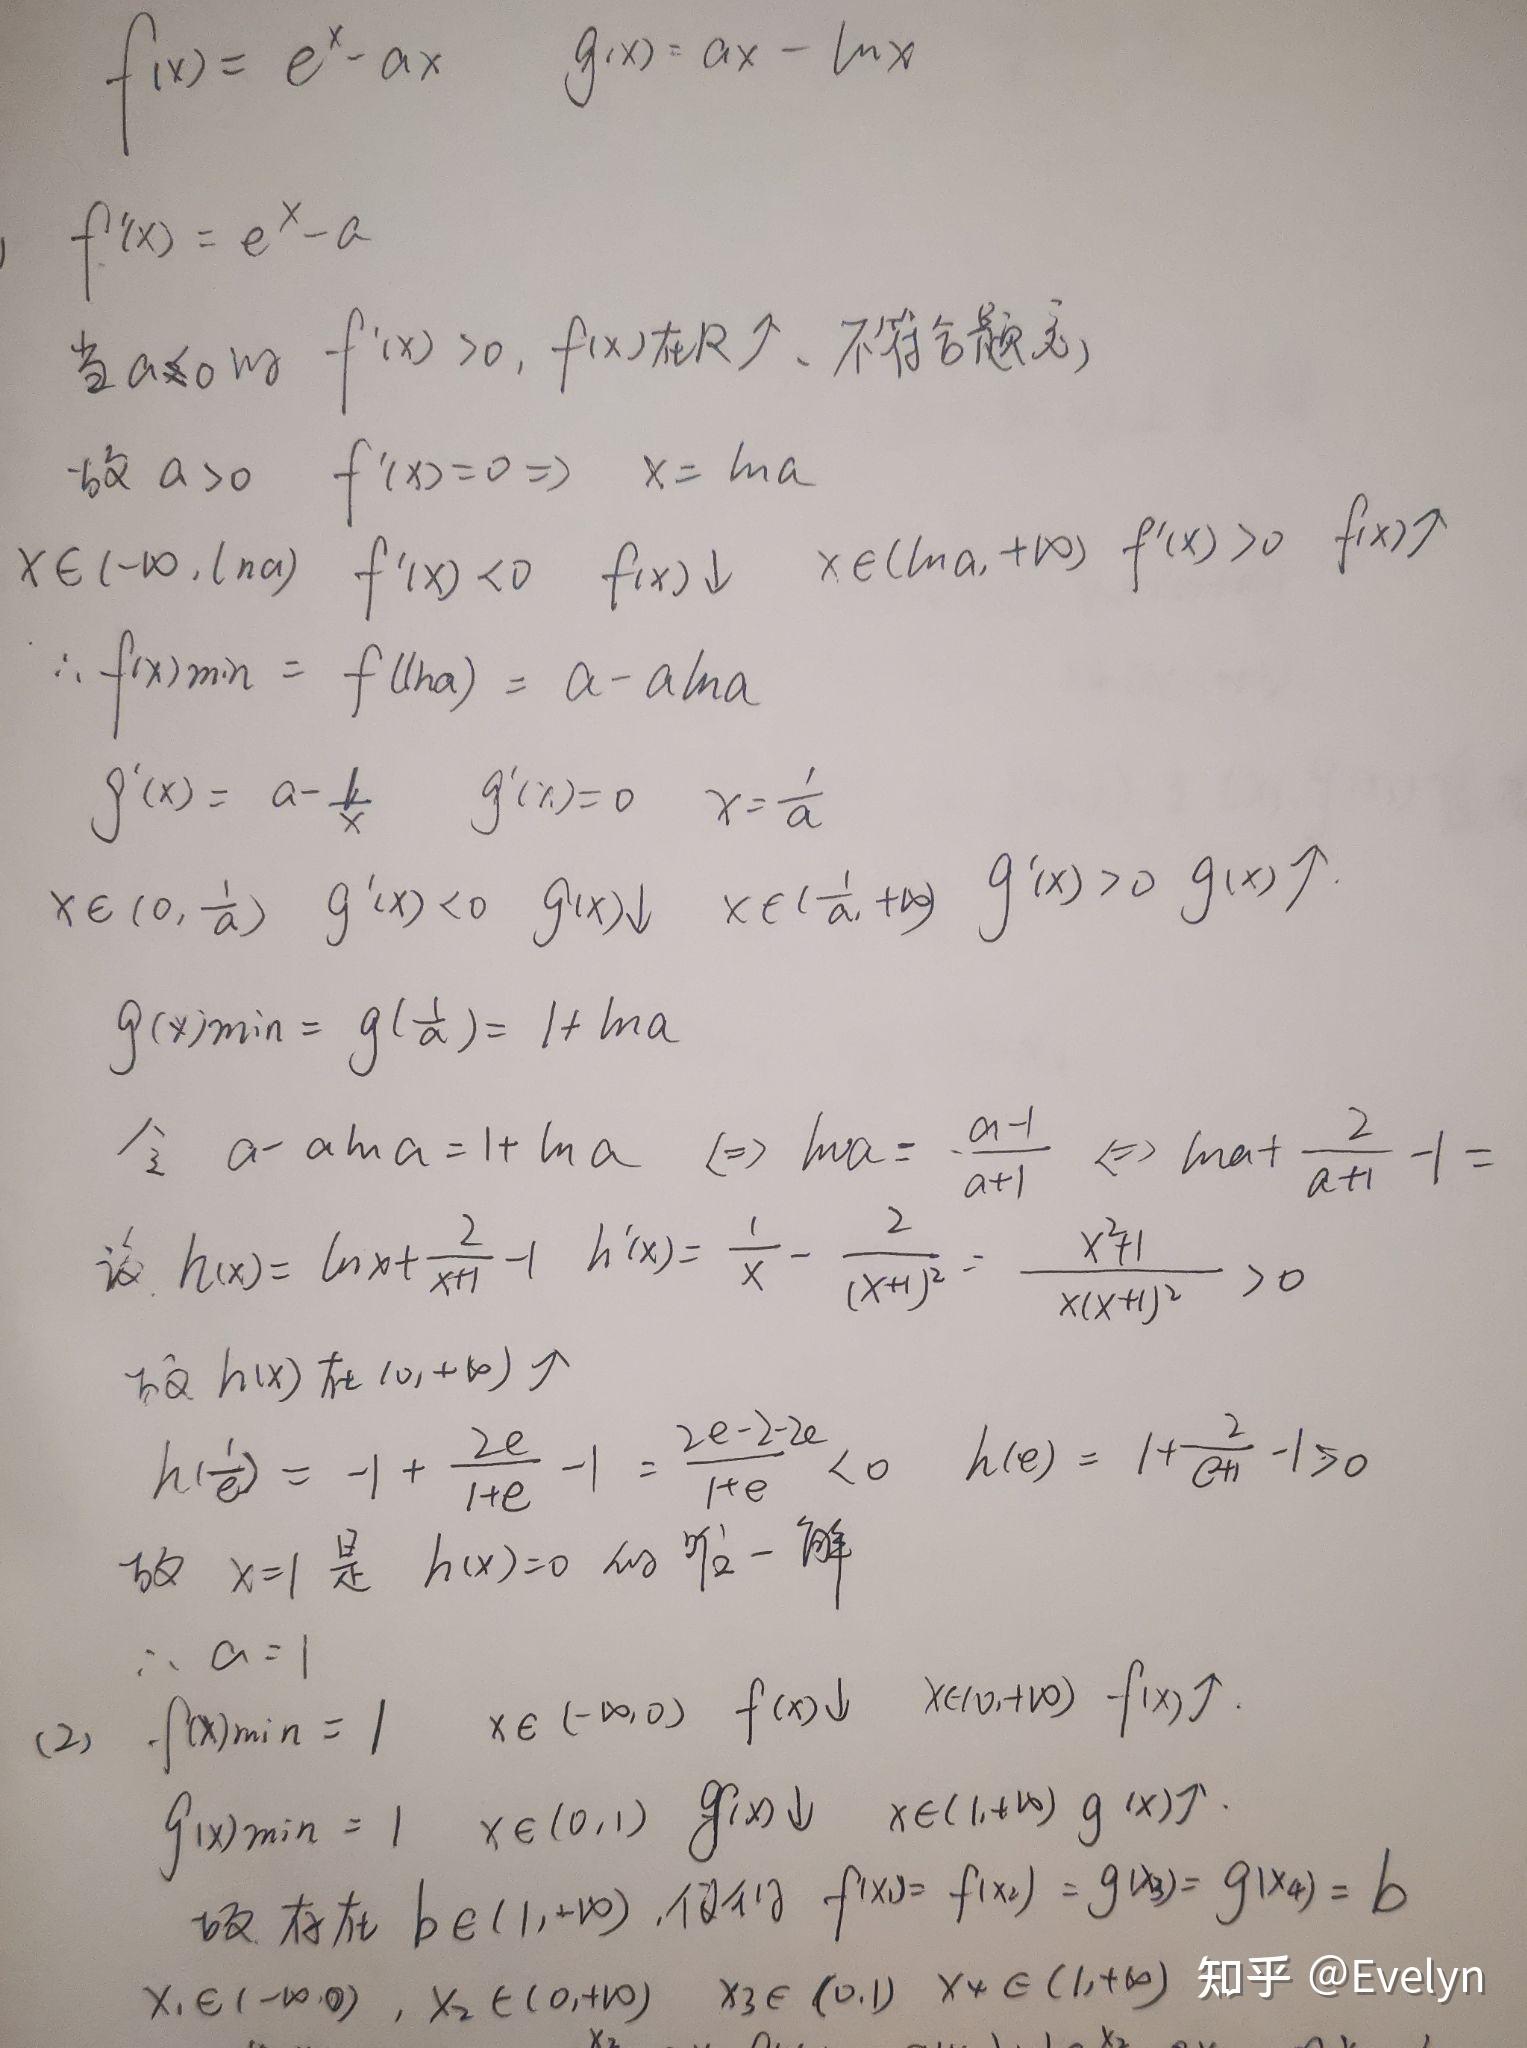 f(x) = e^x - ax   g(x) = ax - lnx
f'(x) = e^x - a
当a≤0时 f'(x) >0, f(x)在R↑、不符合题意,
故 a>0   f'(x)=0 => x = lna
x∈(-∞,lna) f'(x)<0 f(x)↓   x∈(lna,+∞) f'(x)>0 f(x)↑
∴ f(x)min = f(lna) = a - alna
g'(x) = a - 1/x   g'(x)=0   x = 1/a
x∈(0, 1/a) g'(x)<0 g(x)↓   x∈(1/a, +∞) g'(x)>0 g(x)↑.
g(x)min = g(1/a) = 1+lna
令 a - alna = 1+lna <=> lna = (a-1)/(a+1) <=> lna + 2/(a+1) - 1 =
设 h(x) = lnx + 2/(x+1) - 1   h'(x) = 1/x - 2/(x+1)² = (x²+1)/(x(x+1)²) > 0
故 h(x) 在(0,+∞)↑
h(1/e) = -1 + 2e/(1+e) - 1 = (2e-2-2e)/(1+e) < 0   h(e) = 1 + 2/(e+1) - 1 > 0
故 x=1 是 h(x)=0 的唯一解
∴ a=1
(2) f(x)min = 1   x∈(-∞,0) f(x)↓   x∈(0,+∞) f(x)↑.
g(x)min = 1   x∈(0,1) g(x)↓   x∈(1,+∞) g(x)↑.
故存在 b∈(1,+∞),使得 f(x₁) = f(x₂) = g(x₃) = g(x₄) = b
x₁∈(-∞,0), x₂∈(0,+∞)   x₃∈(0,1) x₄∈(1,+∞)
知乎 @Evelyn